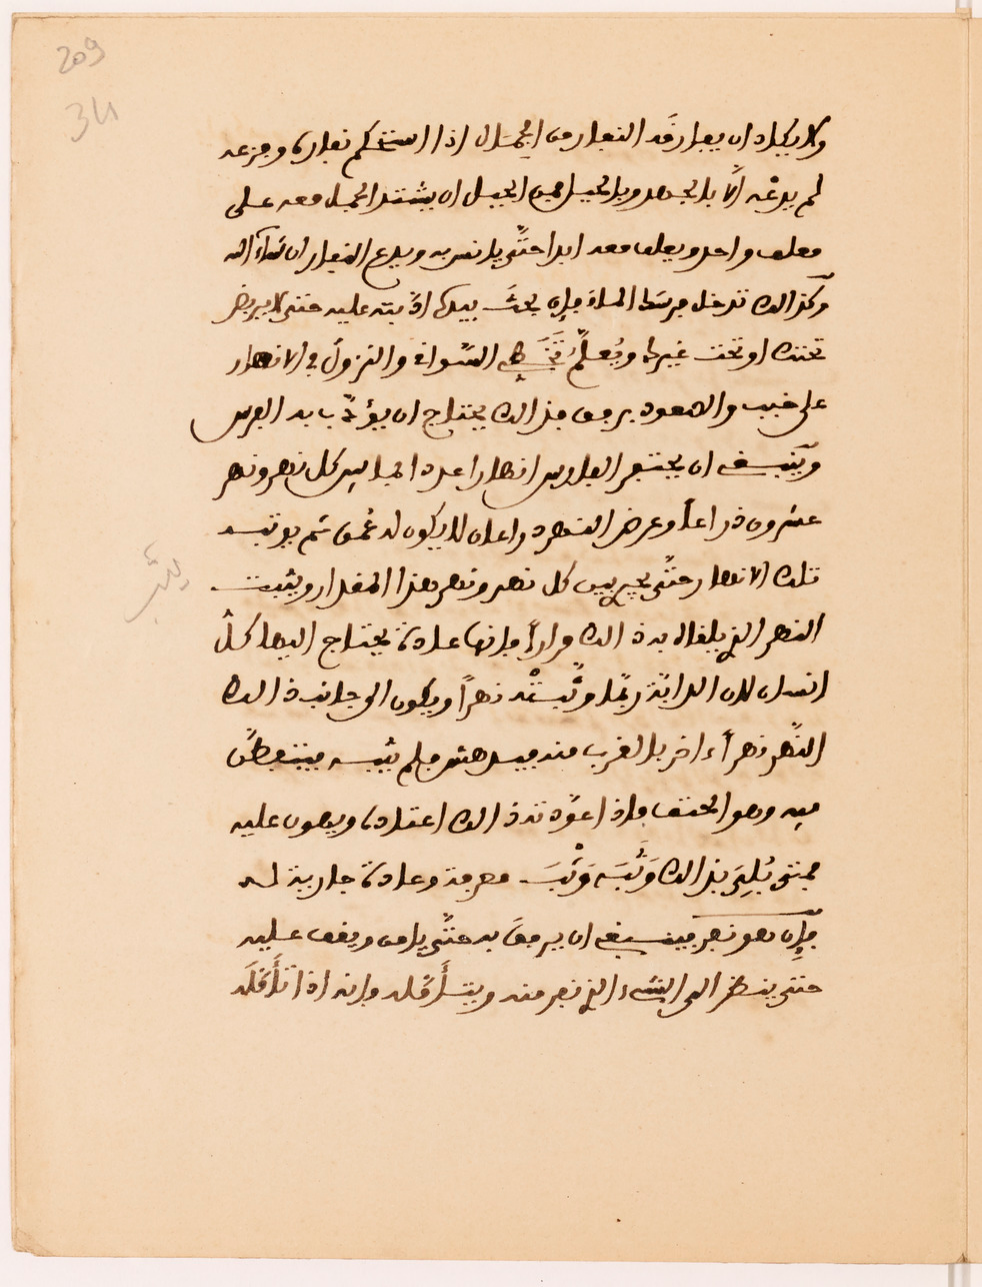 209
34
ولا يكاد ان يفارقه النفار من الجمال اذا استحكم نفاره وفزعه
لم يدعه الّا بالجهد وبالحيل فمن الحيل ان يشتد الجمل معه على
معلف واحد ويعلف معه ابدا حتّى يانس به ويدع النفار ان شاء الله
وكذالك تدخل فرسك الماء فإن بحث بيده اوثبته عليه حتى لا يربض
تحتك او تحت غيرك ويُعلّم تَخَطِّى السّوافي والنزول في الانهار
على خبب والصعود برفق فذالك يحتاج ان يؤدّب به الفرس
وينبغي ان يحتفر الفارس انهارا عدة ما بين كل نهر ونهر
عشرون ذراعا وعرض النهر ذراعان لا يكون له عُمق ثم يوثبه
تلك الانهار حتّى يجيء بين كل نهر ونهر بهذا المقدار ويثبت
النهر الذي يلقاه به ذالك مرارا فإنها عادة يحتاج اليها كلّ
انسان لان الدابّة ربّما وثّبتْه نهرًا ويكون الى جانب ذالك
النّهر نهرًا ءاخر بالقرب منه فيدهش فلم يثبه فيتقطّر
فيه وهو الحتف فإذا عوّدته ذالك اعتاده ويهون عليه
فمتى بُلِيَ بذالك وَثَبَه وَثْبَ معرفة وعادة جارية له
فإن هو نفر فينبغي ان يرفق به حتّى يامن ويقف عليه
حتى ينظر الى الشيء الذي نفر منه ويتأمّله فإنه اذا تأمّله